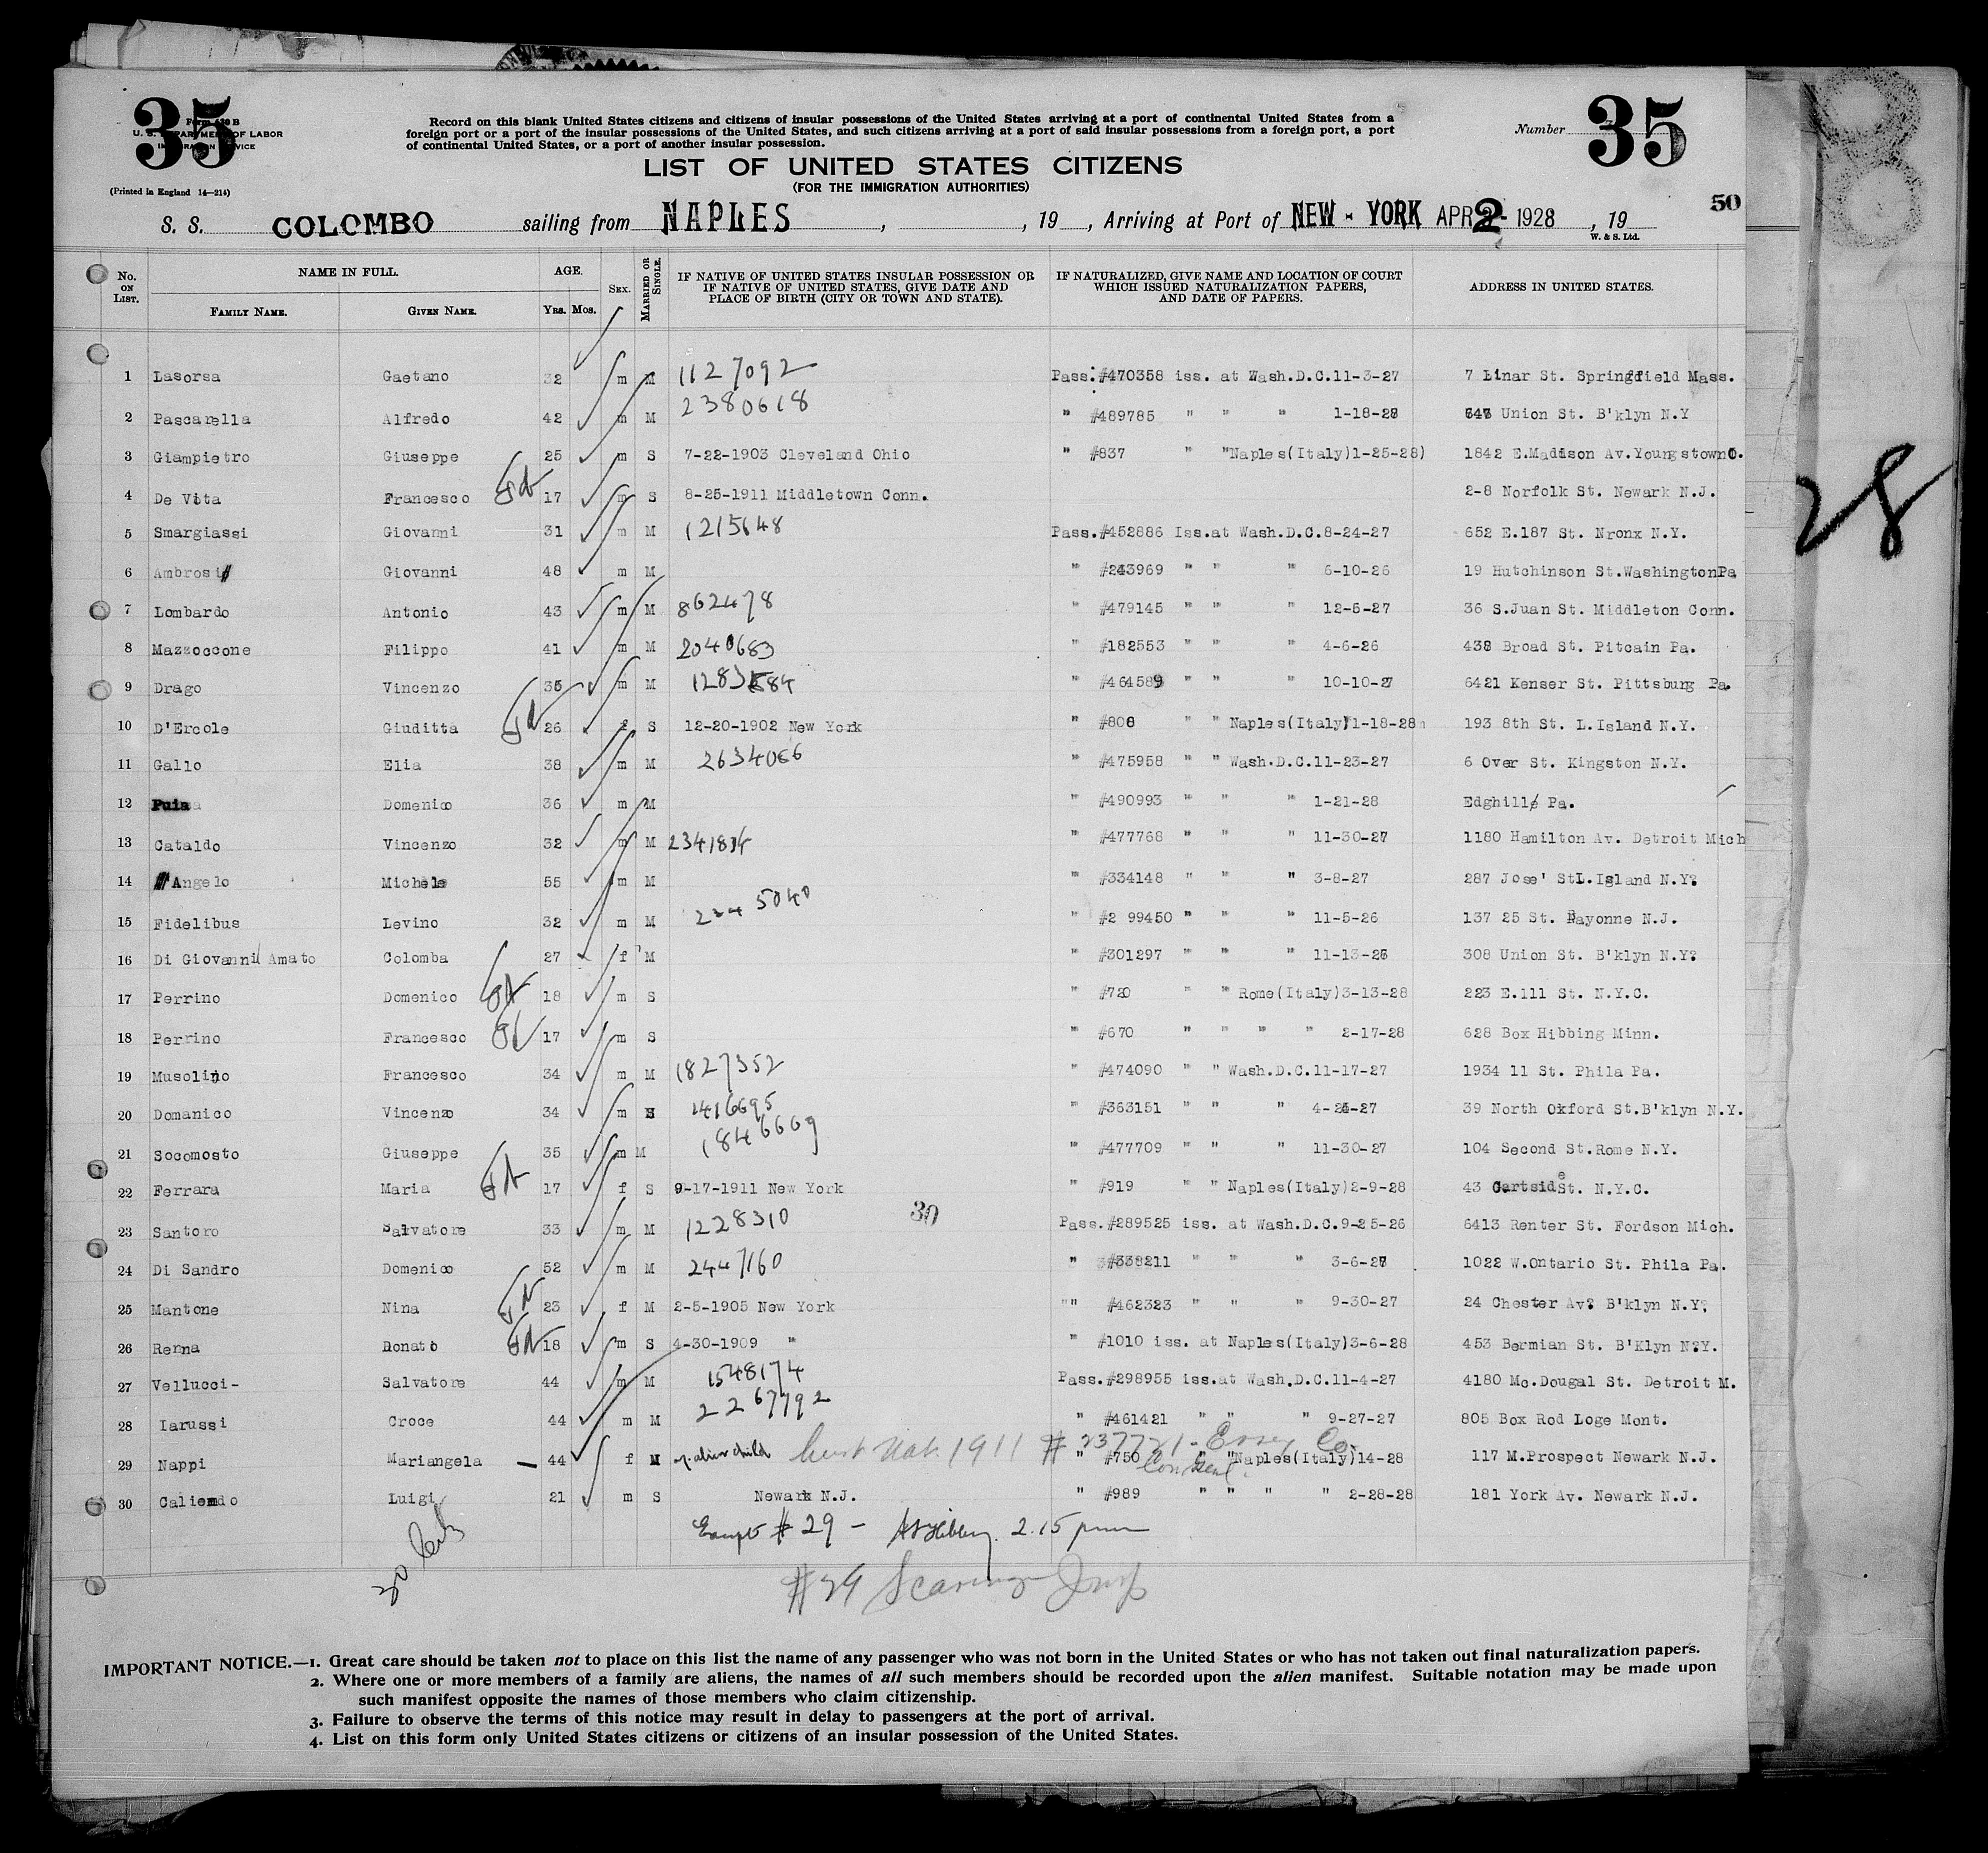 35
Form 430 B
U. S. DEPARTMENT OF LABOR
IMMIGRATION SERVICE
(Printed in England 14—214)
Record on this blank United States citizens and citizens of insular possessions of the United States arriving at a port of continental United States from a
foreign port or a port of the insular possessions of the United States, and such citizens arriving at a port of said insular possessions from a foreign port, a port
of continental United States, or a port of another insular possession.
Number 35
LIST OF UNITED STATES CITIZENS
(FOR THE IMMIGRATION AUTHORITIES)
50
S. S. COLOMBO sailing from NAPLES, , 19 , Arriving at Port of NEW-YORK APR 2 - 1928 , 19
W. & S. Ltd.
No. ON LIST. NAME IN FULL. AGE. SEX. MARRIED OR SINGLE. IF NATIVE OF UNITED STATES INSULAR POSSESSION OR IF NATIVE OF UNITED STATES, GIVE DATE AND PLACE OF BIRTH (CITY OR TOWN AND STATE). IF NATURALIZED, GIVE NAME AND LOCATION OF COURT WHICH ISSUED NATURALIZATION PAPERS, AND DATE OF PAPERS. ADDRESS IN UNITED STATES.
FAMILY NAME. GIVEN NAME. YRS. MOS.
1 Lasorsa Gaetano 32 m M 1127092 Pass.#470358 iss. at Wash.D.C.11-3-27 7 Linar St. Springfield Mass.
2 Pascarella Alfredo 42 m M 2380618 " #489785 " " " 1-18-28 Union St. B'klyn N.Y
3 Giampietro Giuseppe 25 m S 7-22-1903 Cleveland Ohio " #837 " "Naples(Italy)1-25-28) 1842 E.Madison Av.Youngstown O.
4 De Vita Francesco 17 m S 8-25-1911 Middletown Conn. 2-8 Norfolk St. Newark N.J.
5 Smargiassi Giovanni 31 m M 1215648 Pass.#452886 Iss.at Wash.D.C.8-24-27 652 E.187 St. Nronx N.Y.
6 Ambrosi Giovanni 48 m M " #243969 " " " 6-10-26 19 Hutchinson St.Washington Pa
7 Lombardo Antonio 43 m M 862478 " #479145 " " " 12-5-27 36 S.Juan St. Middleton Conn.
8 Mazzoccone Filippo 41 m M 2040683 " #182553 " " " 4-6-26 438 Broad St. Pitcain Pa.
9 Drago Vincenzo 35 m M " #464589 " " " 10-10-27 6421 Kenser St. Pittsburg Pa.
10 D'Ercole Giuditta 26 f S 12-20-1902 New York " #808 " " Naples(Italy)1-18-28 193 8th St. L.Island N.Y.
11 Gallo Elia 38 m M 2634066 " #475958 " " Wash.D.C.11-23-27 6 Over St. Kingston N.Y.
12 Puia Domenico 36 m M " #490993 " " " 1-21-28 Edghill Pa.
13 Cataldo Vincenzo 32 m M 2341834 " #477768 " " " 11-30-27 1180 Hamilton Av. Detroit Mich
14 Angelo Michele 55 m M " #334148 " " " 3-8-27 287 Jose' St L.Island N.Y?
15 Fidelibus Levino 32 m M 5040 " #2 99450 " " " 11-5-26 137 25 St. Bayonne N.J.
16 Di Giovanni Amato Colomba 27 f M " #301297 " " " 11-13-26 308 Union St. B'klyn N.Y?
17 Perrino Domenico 18 m S " #720 " " Rome(Italy)3-13-28 223 E.111 St. N.Y.C.
18 Perrino Francesco 17 m S " #670 " " " " 2-17-28 628 Box Hibbing Minn.
19 Musolino Francesco 34 m M 1827352 " #474090 " " Wash.D.C.11-17-27 1934 11 St. Phila Pa.
20 Domanico Vincenzo 34 m S 1416695 " #363151 " " " 39 North Oxford St.B'klyn N.Y.
21 Socomosto Giuseppe 35 m M 1846669 " #477709 " " " 11-30-27 104 Second St.Rome N.Y.
22 Ferrara Maria 17 f S 9-17-1911 New York " #919 " " Naples(Italy)2-9-28 43 Cartside St. N.Y.C.
23 Santoro Salvatore 33 m M 1228310 30 Pass.#289525 iss. at Wash.D.C.9-25-26 6413 Renter St. Fordson Mich.
24 Di Sandro Domenico 52 m M 2447160 " #338211 " " " 3-6-28 1022 W.Ontario St. Phila Pa.
25 Mantone Nina 23 f M 2-5-1905 New York "" #462323 " " " 9-30-27 24 Chester Av? B'klyn N.Y?
26 Renna Donato 18 m S 4-30-1909 " " #1010 iss. at Naples(Italy)3-6-28 453 Bermian St. B'Klyn N.Y.
27 Vellucci- Salvatore 44 m M 1548174 Pass.#298955 iss.at Wash.D.C.11-4-27 4180 Mc.Dougal St. Detroit M.
28 Iarussi Croce 44 m M 2267792 " #461421 " " " 9-27-27 805 Box Rod Loge Mont.
29 Nappi Mariangela — 44 f M alien child Nat. 1911 # 237721 - Essex Co. " #750 " "Naples(Italy)14-28 117 M.Prospect Newark N.J.
30 Caliendo Luigi 21 m S Newark N.J. " #989 " " " " 2-28-28 181 York Av. Newark N.J.
Except # 29 - 2.15 pm
#29
IMPORTANT NOTICE.—1. Great care should be taken not to place on this list the name of any passenger who was not born in the United States or who has not taken out final naturalization papers.
2. Where one or more members of a family are aliens, the names of all such members should be recorded upon the alien manifest. Suitable notation may be made upon
such manifest opposite the names of those members who claim citizenship.
3. Failure to observe the terms of this notice may result in delay to passengers at the port of arrival.
4. List on this form only United States citizens or citizens of an insular possession of the United States.
28